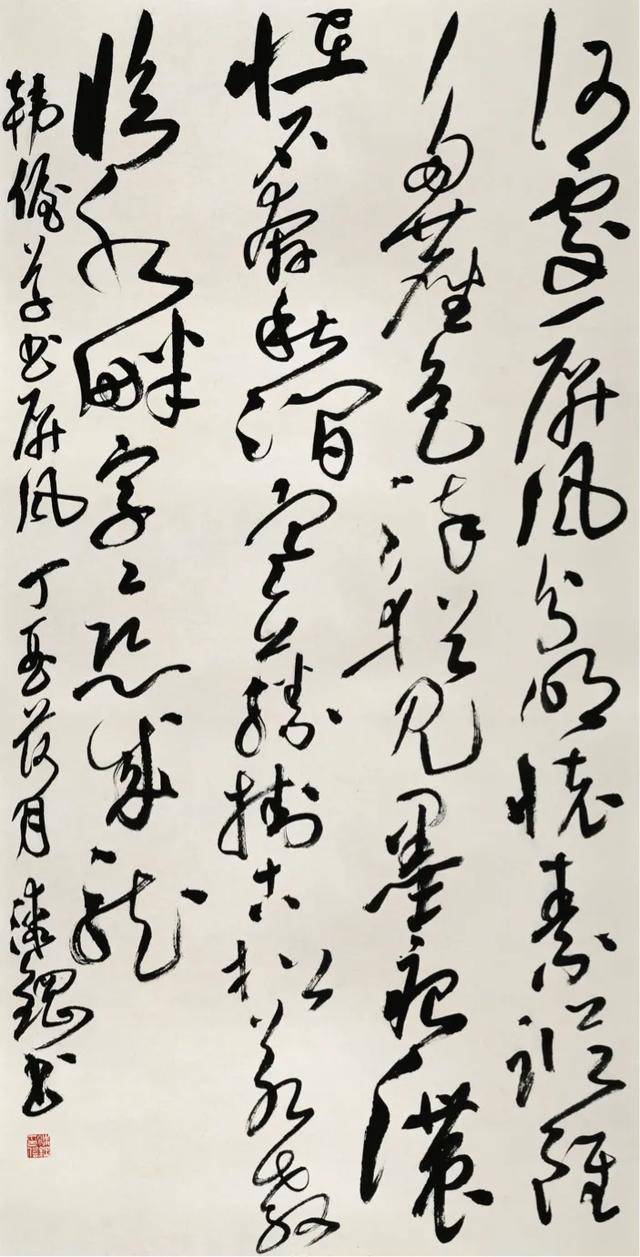 何處一屏風分明懷素蹤雖
多塵色染猶見墨痕濃
怪石奔秋澗寒藤掛古松若教
臨水畔字〻恐成龍
韓偓草書屏風 丁亥 月 漆鋼書